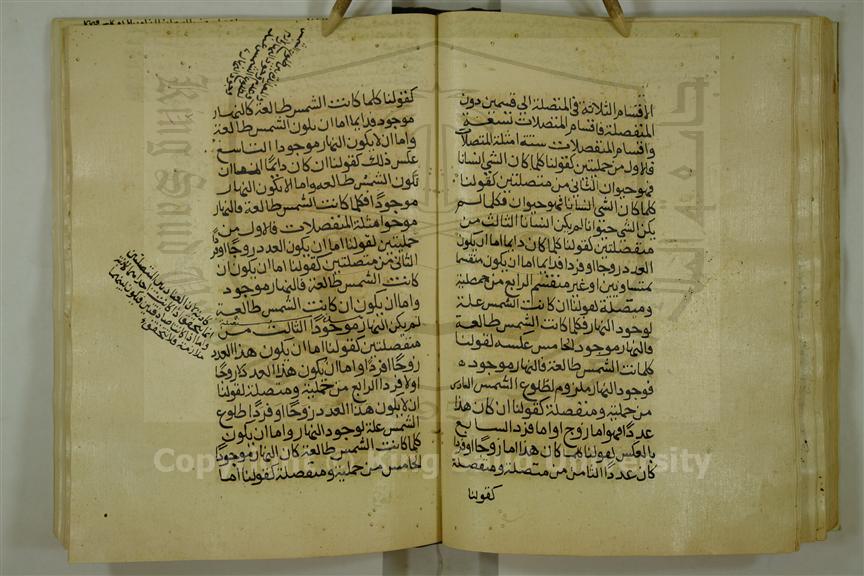 الاقسام الثلاثة في المتصلة الى قسمين دون
المنفصلة فاقسام المتصلات تسعة
واقسام المنفصلات ستة امثلة المتصلات
فالاول من حمليتين كقولنا كلما كان الشي انسانا
فهو حيوان الثاني من متصلتين كقولنا
كلما كان الشي انسانا فهو حيوان فكلما لم
يكن الشي حيوانا لم يكن انسانا الثالث من
منفصلتين كقولنا كلما كان دايما اما ان يكون
العدد زوجا او فردا فدايما اما ان يكون منقسما
بمتساويين او غير منقسم الرابع من حملية
ومتصلة كقولنا ان كانت الشمس علة
لوجود النهار فكلما كانت الشمس طالعة
فالنهار موجود الخامس عكسه كقولنا
كلما كانت الشمس طالعة فالنهار موجود
فوجود النهار ملزوم لطلوع الشمس السادس
من حملية ومنفصلة كقولنا ان كان هذا
عددا فهو اما زوج او اما فرد السابع
بالعكس كقولنا كلما كان هذا اما زوجا او فردا
كان عددا الثامن من متصلة ومنفصلة
كقولنا
كقولنا كلما كانت الشمس طالعة كالنهار
موجود فدايما اما ان يكون الشمس طالعة
واما ان لا يكون النهار موجودا التاسع
عكس ذلك كقولنا ان كان دايما اما ان
تكون الشمس طالعه واما لا يكون النهار
موجودا فكلما كانت الشمس طالعة فالنهار
موجود امثلة المنفصلات فالاول من
حمليتين كقولنا اما ان يكون العدد زوجا او فردا
الثاني من متصلتين كقولنا اما ان يكون ان
كانت الشمس طالعة فالنهار موجود
واما ان يكون ان كانت الشمس طالعة
لم يكن النهار موجودا الثالث من
منفصلتين كقولنا اما ان يكون هذا العدد
زوجا او فردا واما ان يكون هذا العدد لا زوجا
ولا فردا الرابع من حملية ومتصلة كقولنا
ان لا يكون هذا العدد زوجا او فردا طلوع
الشمس علة لوجود النهار واما ان يكون
كلما كانت الشمس طالعة كان النهار موجودا
الخامس من حملية ومنفصلة كقولنا اما
Copyright © King Saud University
جامعة الملك
King Saud